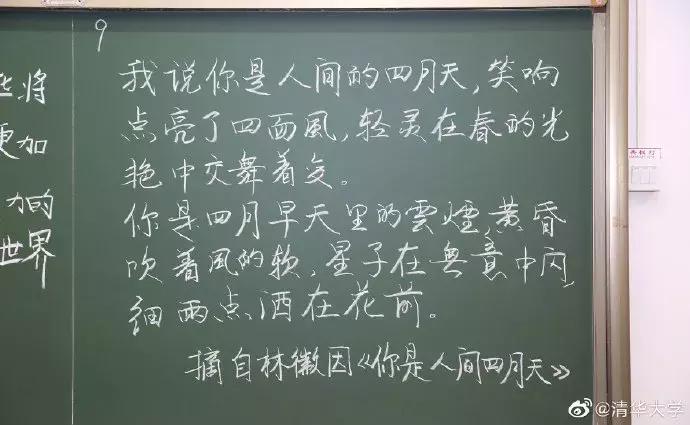 些将
更加
力的
世界
9
我说你是人间的四月天,笑响
点亮了四面風,轻灵在春的光
艳中交舞着变。
你是四月早天里的雲煙,黄昏
吹着風的软,星子在無意中闪,
细雨点洒在花前。
摘自林徽因《你是人间四月天》
@清华大学